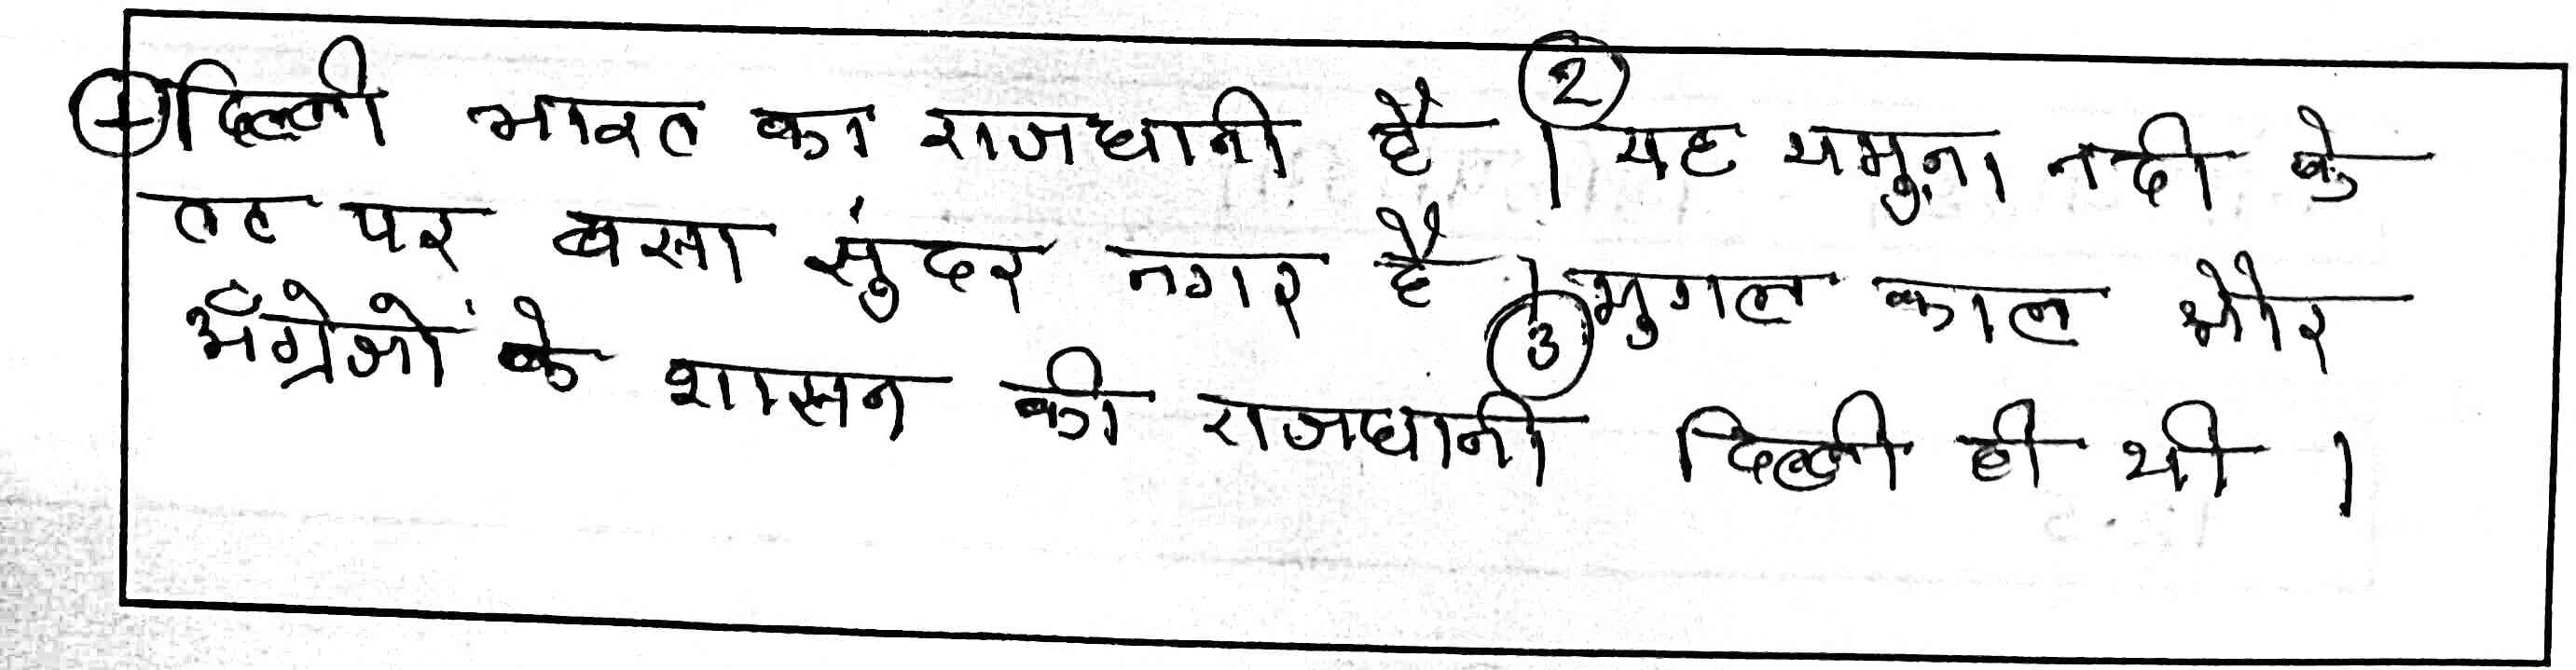 ① दिल्ली भारत का राजधानी है । ② यह यमुना नदी के
तट पर बसा सुंदर नगर है । ③ मुगल काल और
अँग्रेजों के शासन की राजधानी दिल्ली ही थी ।